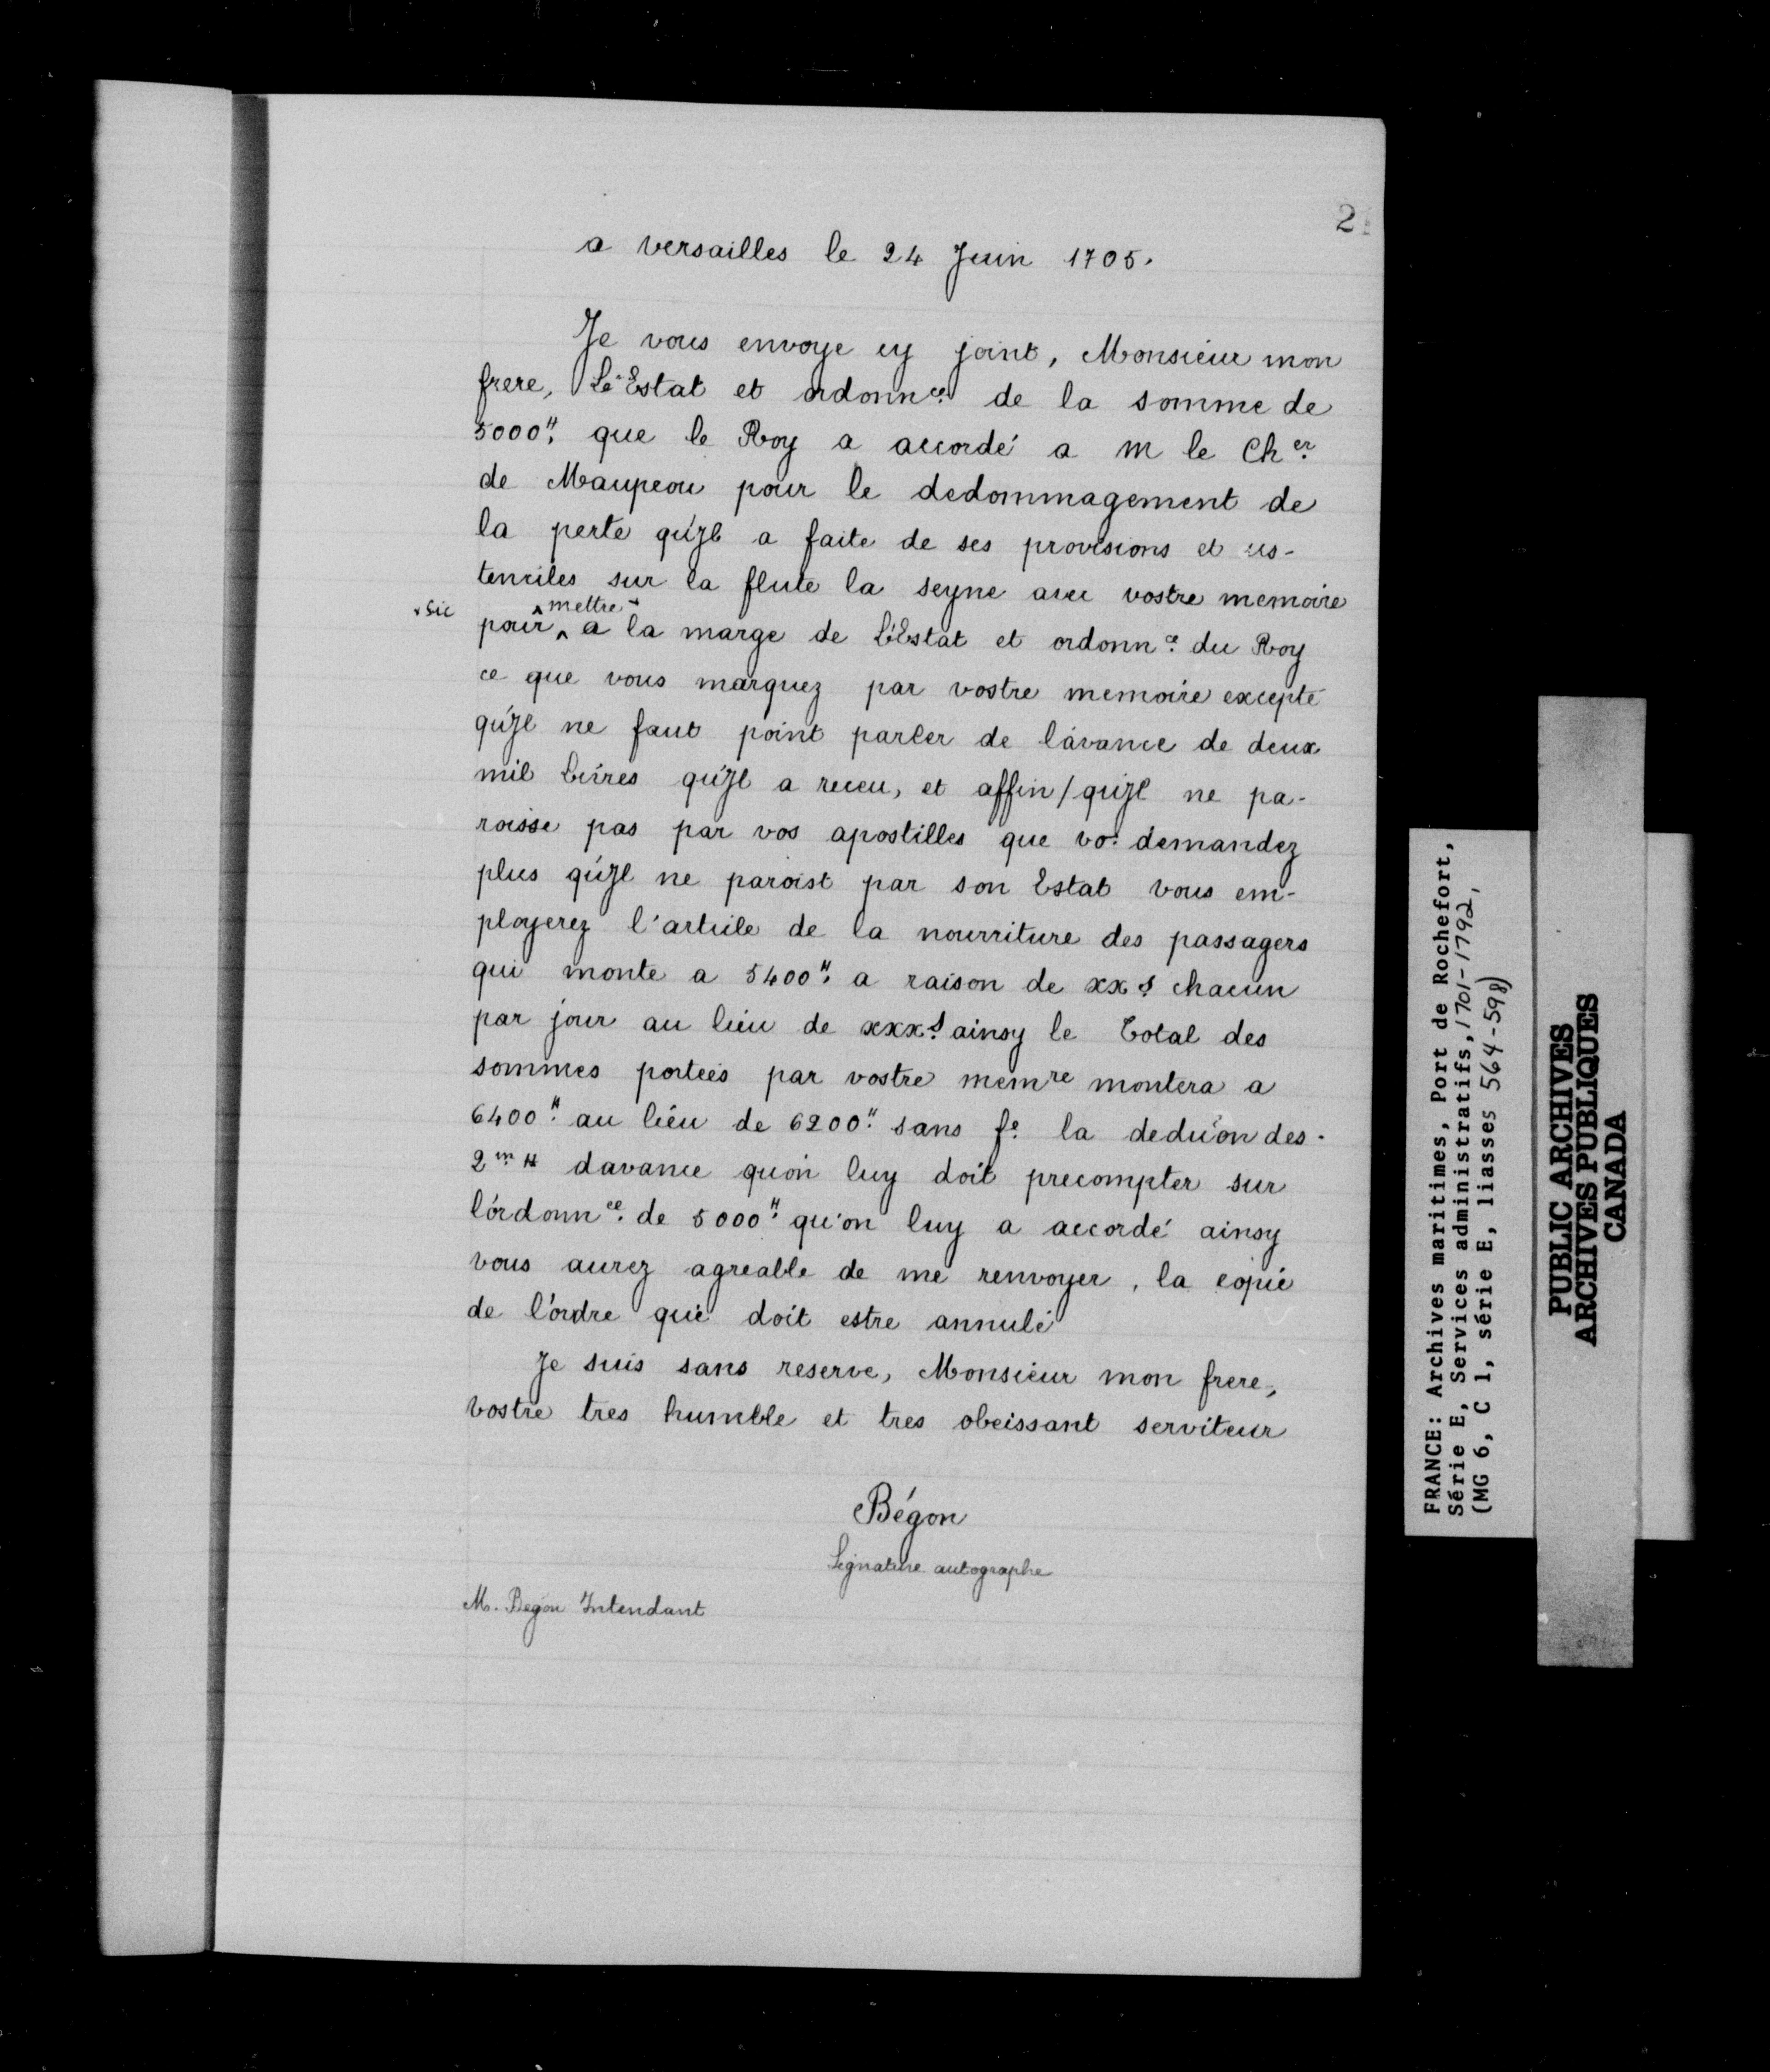 2
a versailles le 24 Juin 1705.
Je vous envoye cy joint, Monsieur mon
frere, L'Estat et ordonnce. de la somme de
5000# que le Roy a accordé a M le Cher.
de Maupeou pour le dedommagement de
la perte qu'Jl a faite de ses provisions et us-
tenciles sur la flute la seyne avec vostre memoire
x sic
mettre x
pour ^ a la marge de L'Estat et ordonnce. du Roy
ce que vous marquez par vostre memoire excepté
qu'Jl ne faut point parler de l'avance de deux
mil livres qu'Jl a receu, et affin/qu'Jl ne pa-
roisse pas par vos apostilles que vo. demandez
plus qu'Jl ne paroist par son Estat vous em-
ployerez l'article de la nourriture des passagers
qui monte a 5400# a raison de xx s chacun
par jour au lieu de xxx s ainsy le Total des
sommes portées par vostre memre montera a
6400# au lieu de 6200# sans fe. la deduc'on des
2m. # davance qu'on luy doit precompter sur
l'ordonnce. de 5000# qu'on luy a accordé ainsy
vous aurez agreable de me renvoyer, la copie
de l'ordre qui doit estre annulé
Je suis sans reserve, Monsieur mon frere,
vostre tres humble et tres obeissant serviteur
Bégon
Signature autographe
M. Begon Intendant
FRANCE: Archives maritimes, Port de Rochefort,
Série E, Services administratifs, 1701-1792,
(MG 6, C 1, série E, liasses 564-598)
PUBLIC ARCHIVES
ARCHIVES PUBLIQUES
CANADA